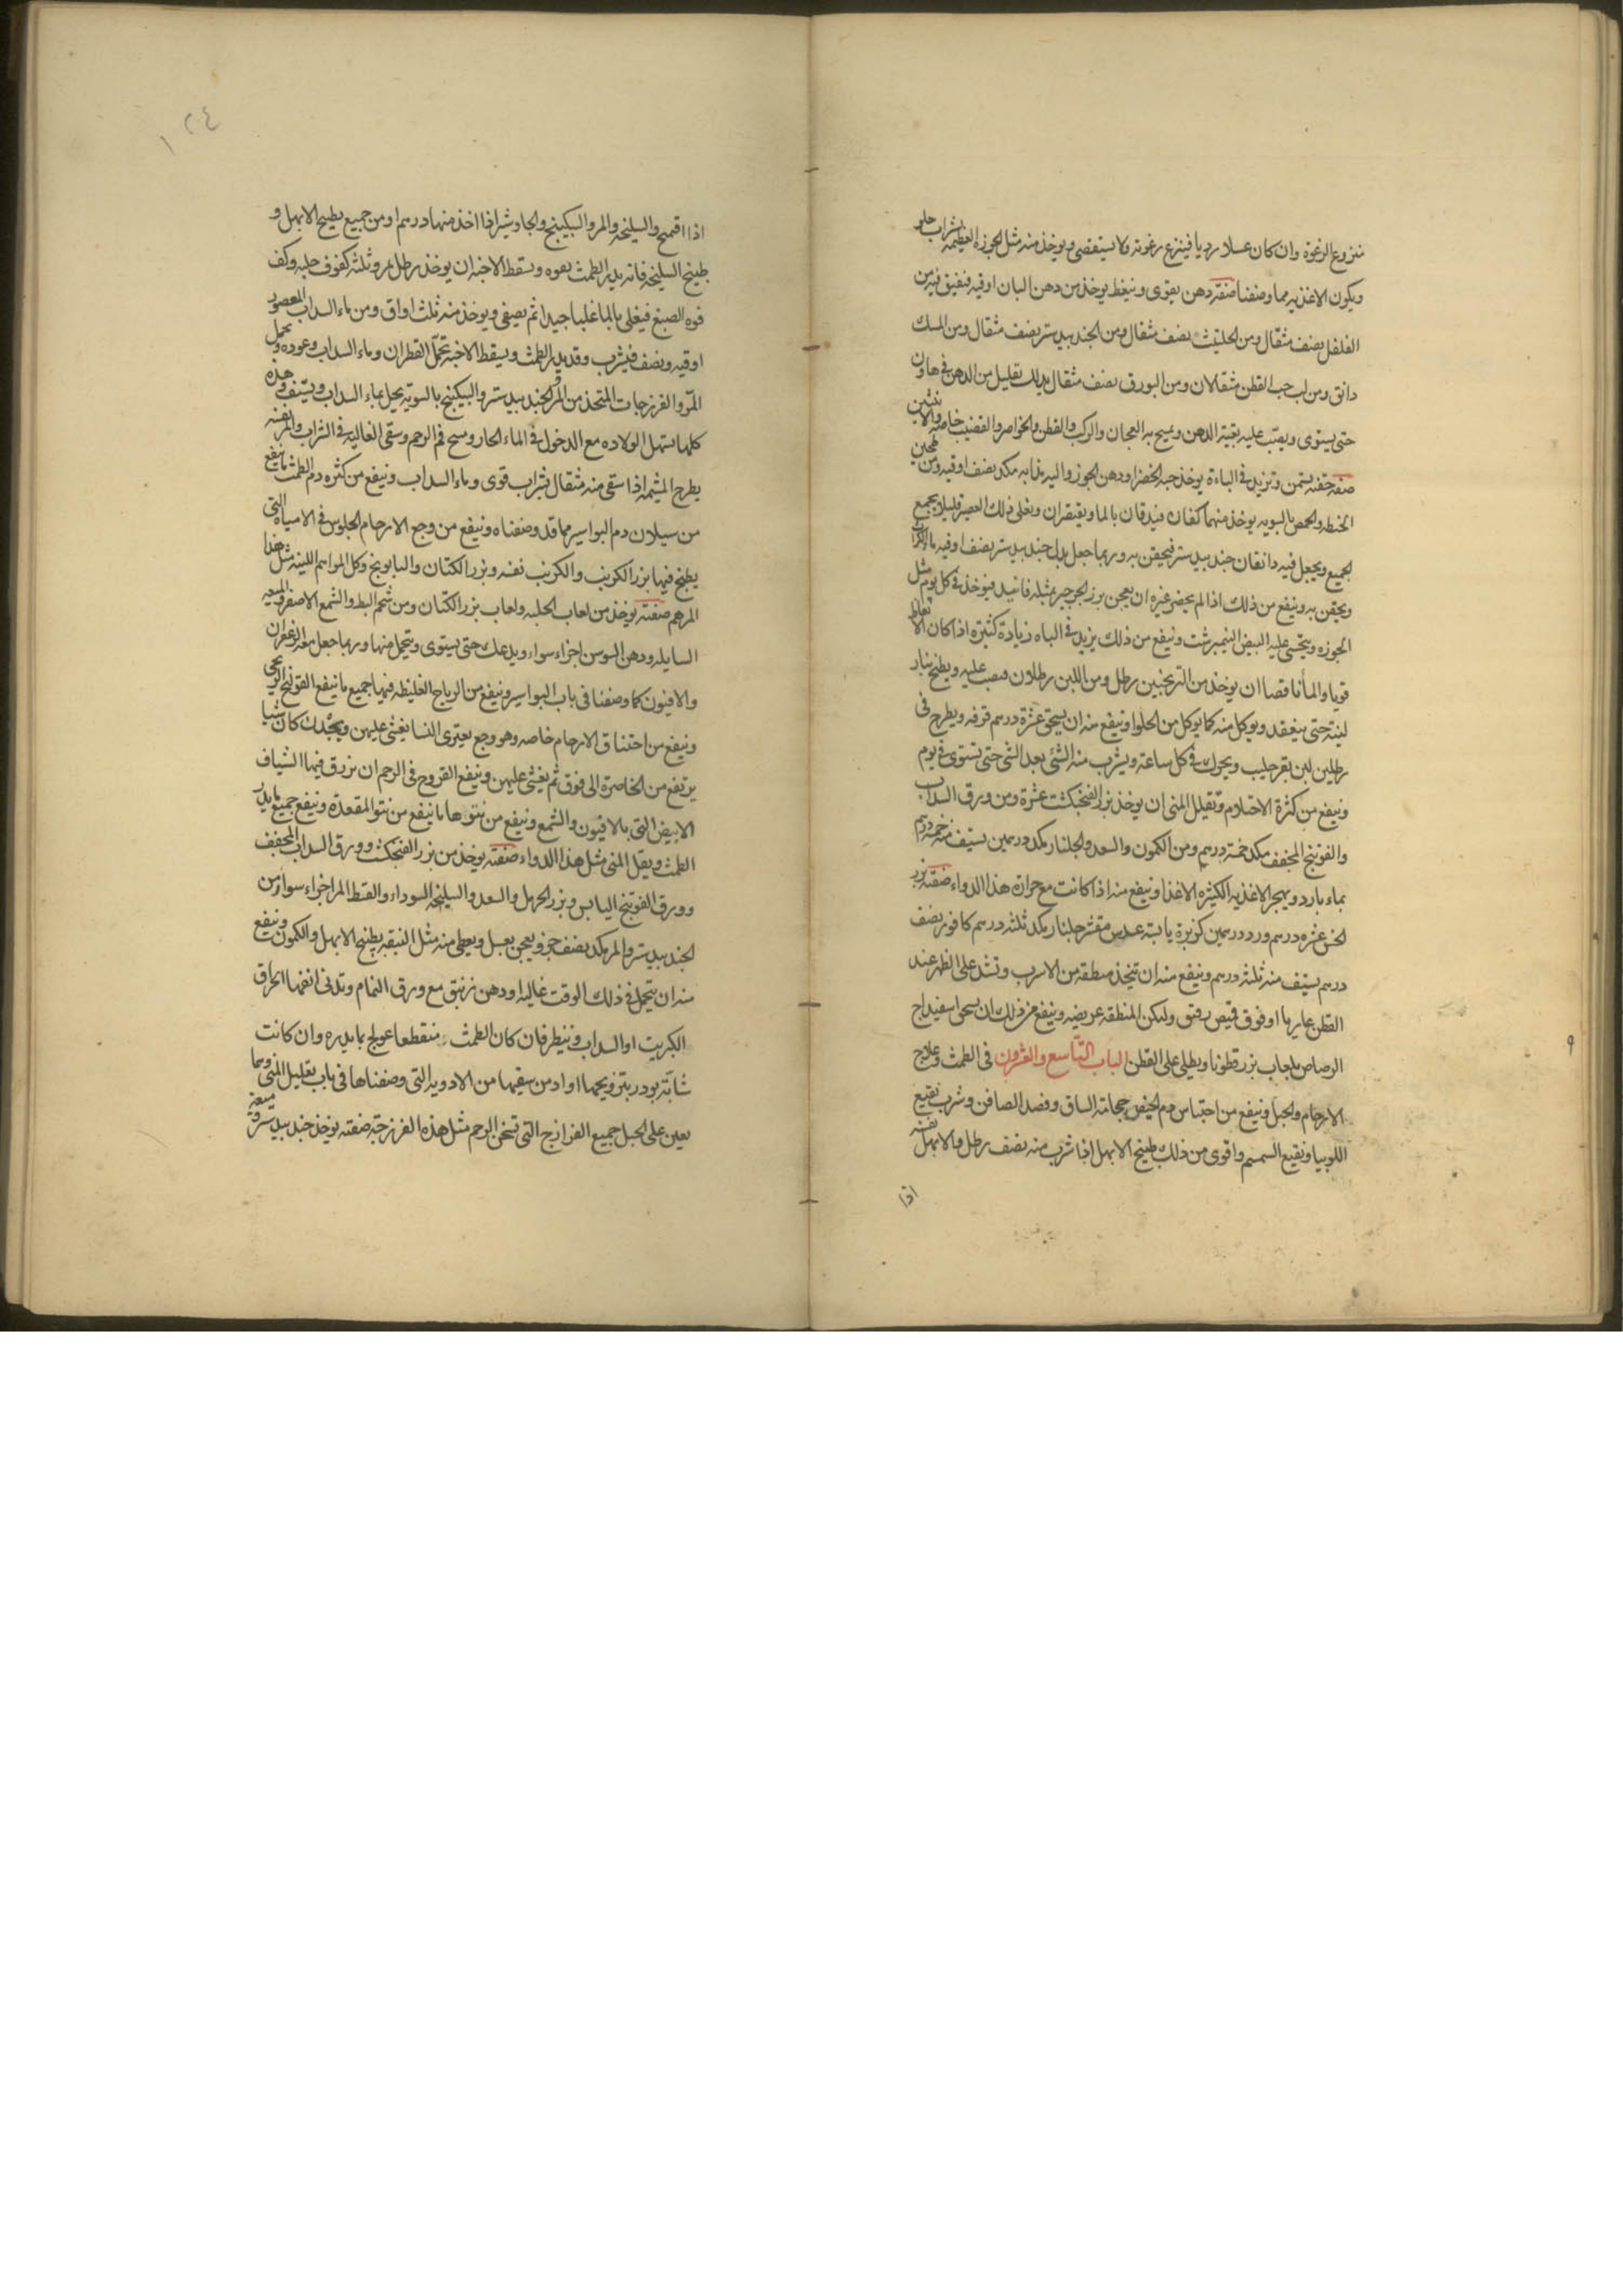 منزوع الرغوة وان كان عسلا رديا فينزع رغوته ولا يستقصى ويوخذ منه مثل الجوزه العظيمه بشراب حلو
ويكون الاغذيه مما وصفنا صفة دهن يقوى وينغظ يوخذ من دهن البان اوقيه فيفتق فيه من
الفلفل نصف مثقال ومن الحلتيت نصف مثقال ومن الجندبيدستر نصف مثقال ومن المسك
دانق ومن لب حب القطن مثقالان ومن البورق نصف مثقال يدلك بقليل من الدهن فى هاون
حتى يستوى ويصب عليه بقية الدهن ويمرخ به العجان والوركب والقطن والخواصر والقضيب خاصه والانثيين
صفة حقنه يسمن وتزيد فى الباءة يوخذ حبه الخضرا ودهن الجوز واليه مذابه مكد نصف اوقيه ومن طحين
الحنطه والحمص بالسويه يوخذ منهما كفان فيدقان بالما ويعتصران ويغلى ذلك العصير قليلا ويجمع
الجميع ويجعل فيه دانقان جندبيدستر فيحقن به وربما جعل بدل جندبيدستر نصف اوقيه ما الكراث
ويحقن به وينفع من ذلك اذا لم يحضر غيره ان يعجن بزر الجرجير بمثله فانيد فيوخذ فى كل يوم مثل
الجوزه ويتحسى عليه البيض النيمبرشت وينفع من ذلك يزيد فى الباه زيادة كثيره اذا كان الانعاظ
قويا والما ناقصا ان يوخذ من الترنجبين رطل ومن اللبن رطلان فيصب عليه ويطبخ بنار
لينة حتى ينعقد ويوكل منه كما يوكل من الحلوا وينفع منه ان يسحق عشرة درهم قرفه ويطرح فى
رطلين لبن بقر حليب ويحرك فى كل ساعة ويشرب منه الشئ بعد الشى حتى تستوى فى يوم
وينفع من كثرة الاحتلام وتقليل المنى ان يوخذ بزر الفنجنكشت عشرة ومن ورق السداب
والفوتنج المجفف مكد خمسة درهم ومن الكمون والسعد والجلنار مكد درهمين يستف منه خمسة درهم
بماء بارد ويهجر الاغذيه الكثيره الاغذا وينفع منه اذا كانت مع حرارة هذا الدواء صفته بزر
الخس عشره درهم ورد درهمين كزبرة يابسة عدس مقشر جلنار مكد ثلثه درهم كافور نصف
درهم يستف منه ثلثه درهم وينفع منه ان تتخذ منطقه من الاسرب وتشد على الظهر عند
القطن عاريا او فوق قميص رقيق ولتكن المنطقه عريضه وينفع من ذلك ان يسحق اسفيداج
الرصاص بلعاب بزر قطونا ويطلى على القطن الباب التاسع والعشرون فى الطمث وعلاج
الارحام والحبل وينفع من احتباس دم الحيض حجامة الساق وفصد الصافن وشرب نقيع
اللوبيا ونقيع السمسم واقوى من ذلك طبيخ الابهل اذا شرب منه نصف رطل والابهل نفسه
اذا
١٢٤
اذا اقمح والسليخه والمر والسكبينج والجاوشير اذا اخذ منها درهم او من جميع بطبيخ الابهل و
طبيخ السليخه فانه يدر الطمث بقوه ويسقط الاجنه ان يوخذ رطل مر وثلثه كفوف حلبه وكف
فوه الصبغ فيغلى بالما غليا جيدا ثم يصفى ويوخذ منه ثلث اواق ومن ماء السداب المعصور
اوقيه ونصف فيشرب وقد يدر الطمث ويسقط الاجنه تحمل القطران وماء السداب وعوده وتحمل
المر والفرزجات المتخذ من المر والجندبيدستر والسكبينج بالسويه يحل بماء السداب ويستف وهذه
كلها تسهل الولاده مع الدخول فى الماء الحار ومسح فم الرحم وسقى الغاليه فى الشراب والمر نفسه
يطرح المشيمه اذا سقى منه مثقال بشراب قوى وماء السداب وينفع من كثره دم الطمث ما ينفع
من سيلان دم البواسير مما قد وصفناه وينفع من وجع الارحام الجلوس فى الامياه التى
يطبخ فيها بزر الكرنب والكرنب نفسه وبزر الكتان والبابونج وكل المراهم اللينه مثل هذا
المرهم صفته يوخذ من لعاب الحلبه ولعاب بزر الكتان ومن شحم البط والشمع الاصفر والميعه
السايله ودهن السوسن اجزاء سواء ويدعك حتى يستوى ويتحمل منها وربما جعل معه الزعفران
والافيون كما وصفنا فى باب البواسير وينفع من الرياح الغليظه فيها جميع ما ينفع القولنج الريحى
وينفع من اختناق الارحام خاصه وهو وجع يعترى النسا يغشى عليهن ويجدن كان شيا
يرتفع من الخاصرة الى فوق ثم يغشى عليهن وينفع القروح فى الرحم ان يزرق فيها الشياف
الابيض التى بالافيون والشمع وينفع من نتوها ما ينفع من نتو المقعدة وينفع جميع ما يدر
الطمث ويقل المنى مثل هذا الدواء صفته يوخذ من بزر الفنجنكشت وورق السداب المجفف
وورق الفوتنج اليابس وبزر الحرمل والسعد والسليخه السوداء والقسط المر اجزاء سوا ومن
الجندبيدستر والمر مكد نصف جزو يعجن بعسل ويعطى منه مثل النبقه بطبيخ الابهل والكمون وينفع
منه ان يتحمل فى ذلك الوقت غاليه او دهن زنبق مع ورق النمام وتدنى انفها احراق
الكبريت او السداب وينظر فان كان الطمث منقطعا عولج بما يدره وان كانت
شابة بودر بتزويجها او ادمن سقيها من الادويه التى وصفناها فى باب تقليل المنى ومما
يعين على الحبل جميع الفرازج التى تسخن الرحم مثل هذه الفرزجة صفته يوخذ جندبيدستر قة ميعه